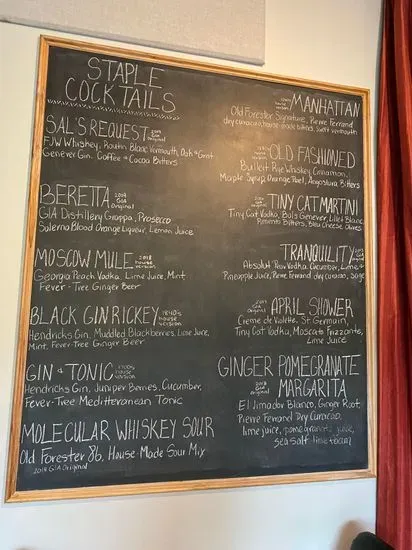 STAPLE
COCKTAILS
SAL'S REQUEST 2019 GIA Original
FJW Whiskey, Routin Blanc Vermouth, Oak & Grist
Genever Gin, Coffee & Cocoa Bitters
BERETTA 2019 GIA Original
GIA Distillery Grappa, Prosecco
Salerno Blood Orange Liqueur, Lemon Juice
MOSCOW MULE 2018 house version
Georgia Peach Vodka, Lime Juice, Mint
Fever-Tree Ginger Beer
BLACK GIN RICKEY 1840s house version
Hendricks Gin, Muddled Blackberries, Lime Juice,
Mint, Fever-Tree Ginger Beer
GIN & TONIC 1700s house version
Hendricks Gin, Juniper Berries, Cucumber,
Fever-Tree Mediterranean Tonic
MOLECULAR WHISKEY SOUR
Old Forester 86, House-Made Sour Mix
2019 GIA Original
house version MANHATTAN
Old Forester Signature, Pierre Ferrand
dry curacao, house-made bitters, sweet vermouth
house version OLD FASHIONED
Bulleit Rye Whiskey, Cinnamon,
Maple Syrup, Orange Peel, Angostura Bitters
GIA Original TINY CAT MARTINI
Tiny Cat Vodka, Bols Genever, Lillet Blanc
Pimento Bitters, Bleu Cheese Olives
TRANQUILITY GIA Original
Absolut Pear Vodka, Cucumber, Lime &
Pineapple Juice, Pierre Ferrand dry curacao, Sage
GIA Original APRIL SHOWER
Creme de Violette, St. Germain,
Tiny Cat Vodka, Moscato Frizzante,
Lime Juice
GINGER POMEGRANATE
GIA Original MARGARITA
El Jimador Blanco, Ginger Root,
Pierre Ferrand Dry Curacao,
lime juice, pomegranate juice,
sea salt-lime foam